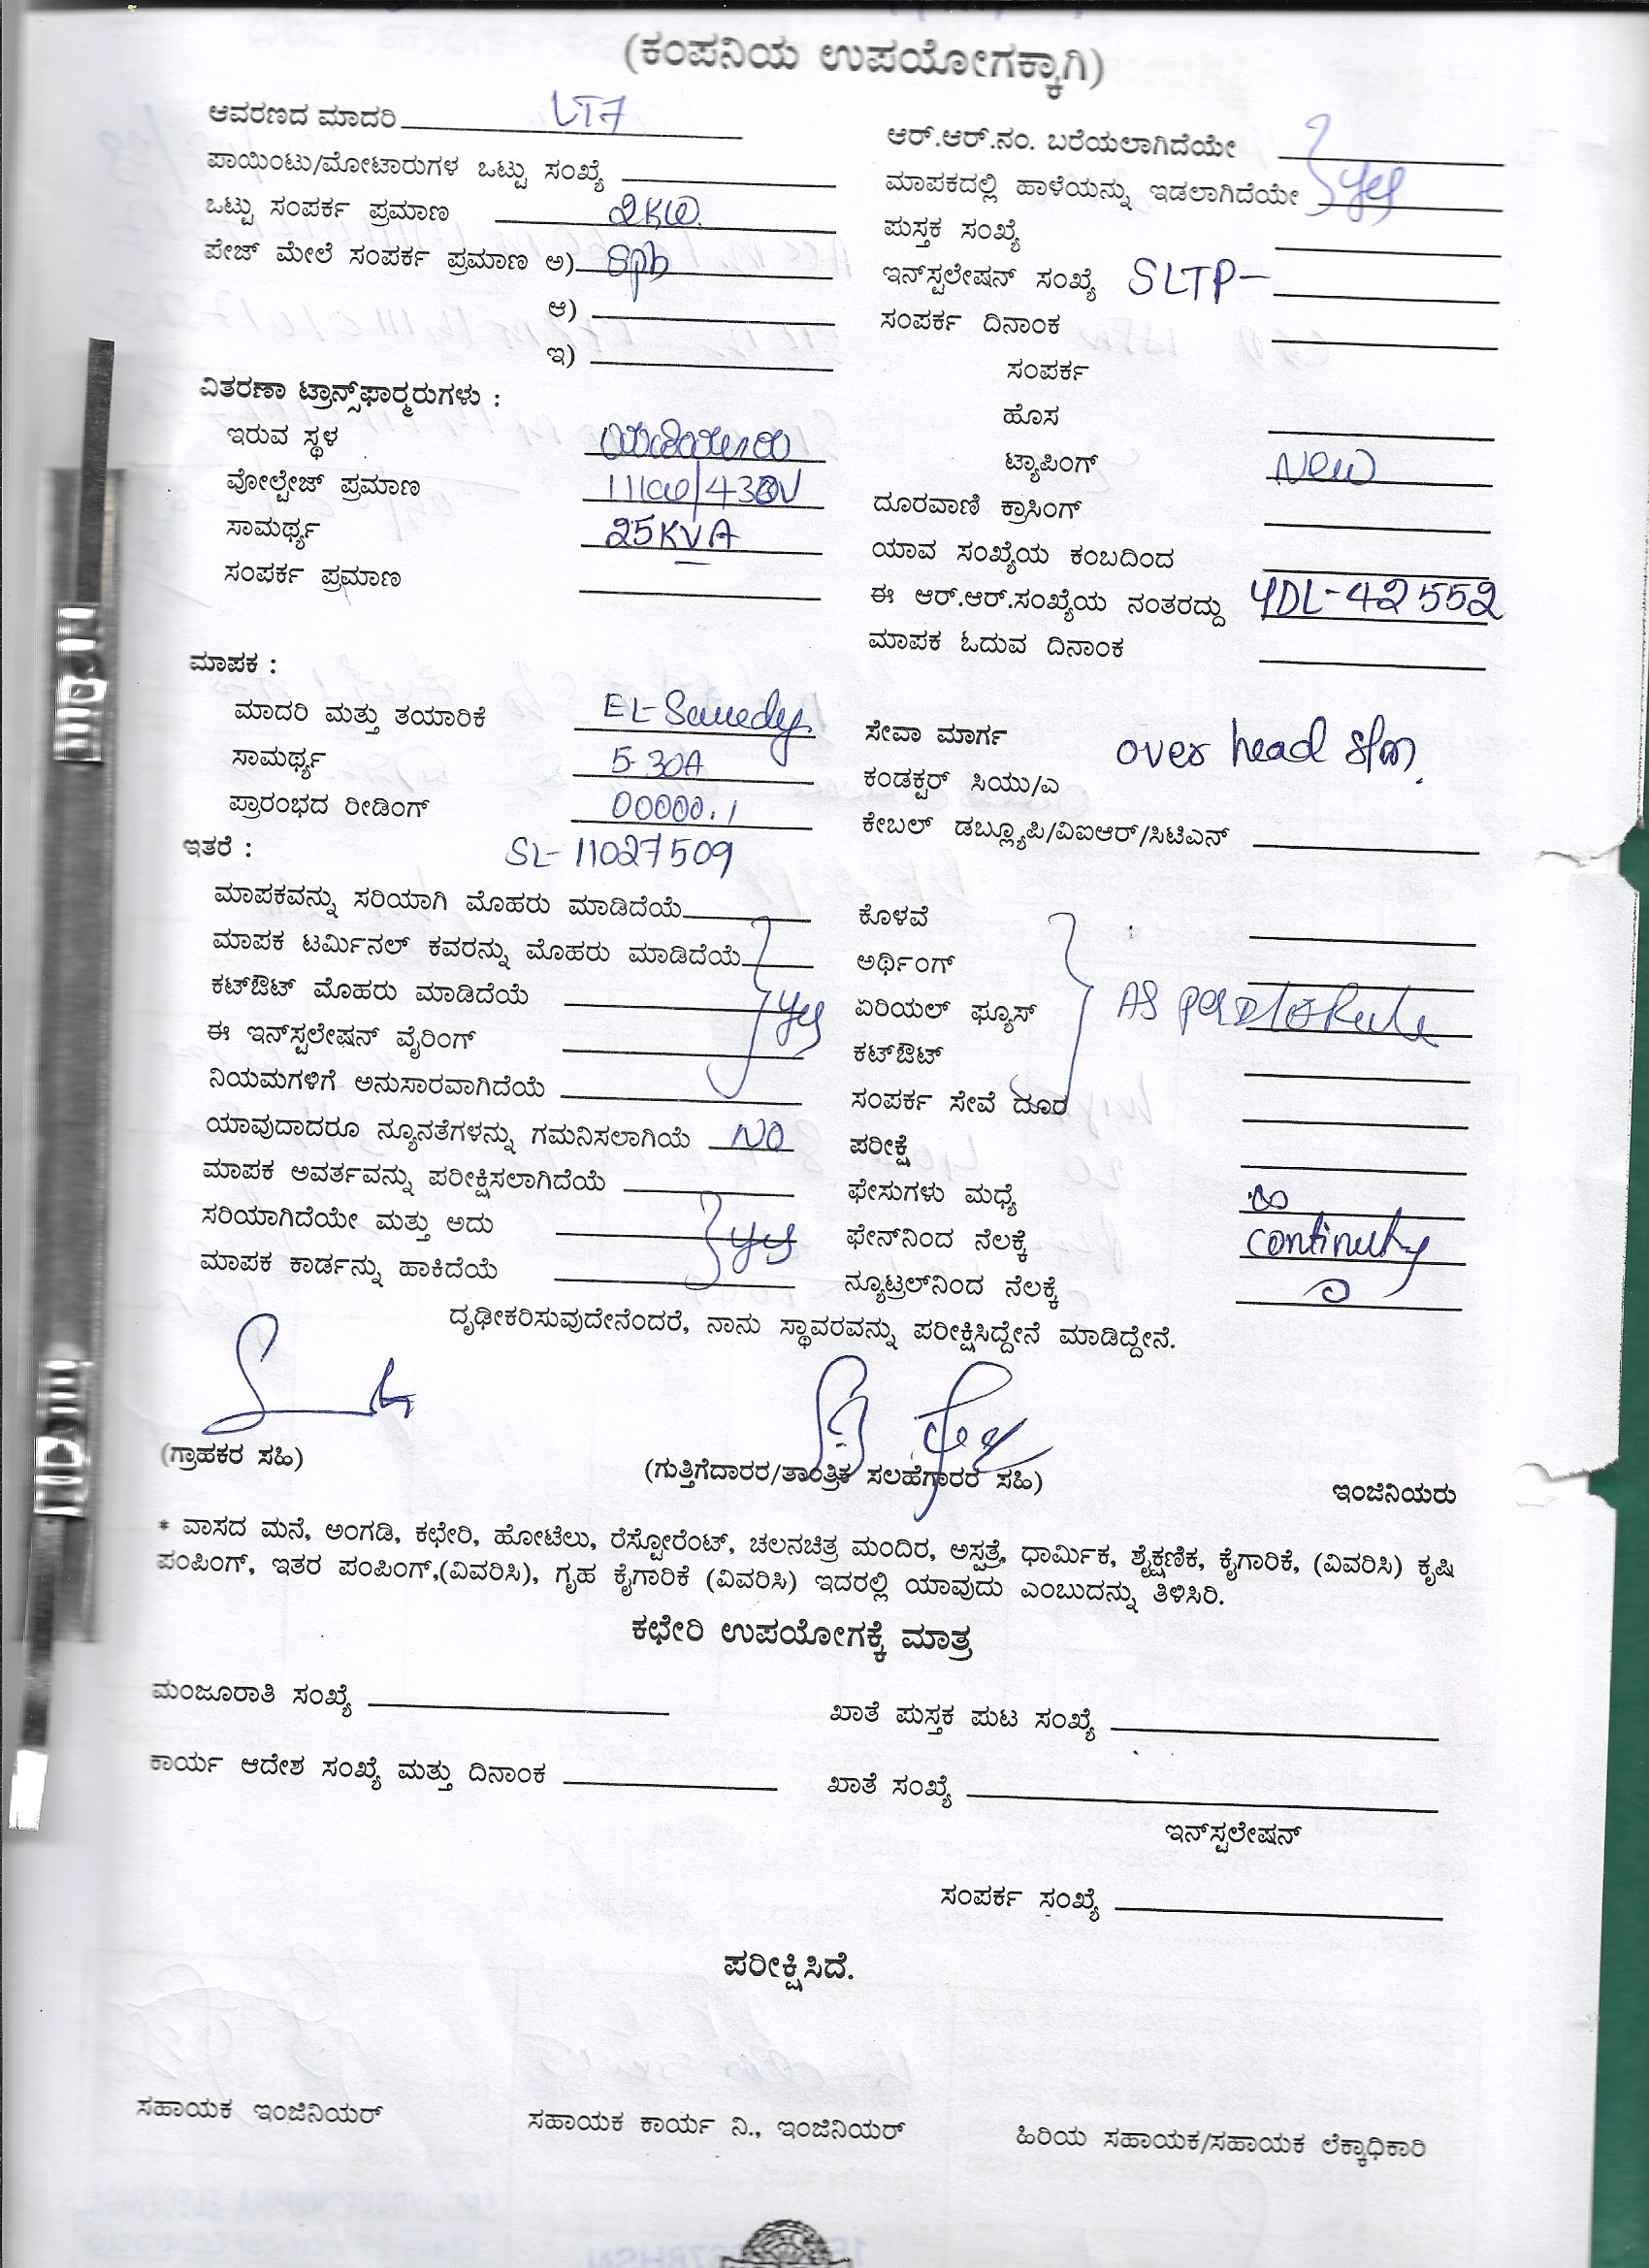 (ಕಂಪನಿಯ ಉಪಯೋಗಕ್ಕಾಗಿ)
ಆವರಣದ ಮಾದರಿ LT7
ಪಾಯಿಂಟು/ಮೋಟಾರುಗಳ ಒಟ್ಟು ಸಂಖ್ಯೆ
ಒಟ್ಟು ಸಂಪರ್ಕ ಪ್ರಮಾಣ 2KW
ಪೇಜ್ ಮೇಲೆ ಸಂಪರ್ಕ ಪ್ರಮಾಣ ಅ)
ಆ)
ಇ)
ವಿತರಣಾ ಟ್ರಾನ್ಸ್‌ಫಾರ‍್ಮರುಗಳು :
ಇರುವ ಸ್ಥಳ
ವೋಲ್ಟೇಜ್ ಪ್ರಮಾಣ
ಸಾಮರ್ಥ್ಯ 25KVA
ಸಂಪರ್ಕ ಪ್ರಮಾಣ
ಆರ್.ಆರ್.ನಂ. ಬರೆಯಲಾಗಿದೆಯೇ
ಮಾಪಕದಲ್ಲಿ ಹಾಳೆಯನ್ನು ಇಡಲಾಗಿದೆಯೇ yes
ಪುಸ್ತಕ ಸಂಖ್ಯೆ
ಇನ್‌ಸ್ಟಲೇಷನ್ ಸಂಖ್ಯೆ SLTP-
ಸಂಪರ್ಕ ದಿನಾಂಕ
ಸಂಪರ್ಕ
ಹೊಸ
ಟ್ಯಾಪಿಂಗ್ New
ದೂರವಾಣಿ ಕ್ರಾಸಿಂಗ್
ಯಾವ ಸಂಖ್ಯೆಯ ಕಂಬದಿಂದ
ಈ ಆರ್.ಆರ್.ಸಂಖ್ಯೆಯ ನಂತರದ್ದು YDL-42552
ಮಾಪಕ ಓದುವ ದಿನಾಂಕ
ಮಾಪಕ :
ಮಾದರಿ ಮತ್ತು ತಯಾರಿಕೆ
ಸಾಮರ್ಥ್ಯ 5-30A
ಪ್ರಾರಂಭದ ರೀಡಿಂಗ್ 00000.1
ಇತರೆ : SL-11027509
ಸೇವಾ ಮಾರ್ಗ over head
ಕಂಡಕ್ಟರ್ ಸಿಯು/ಎ
ಕೇಬಲ್ ಡಬ್ಲ್ಯೂಪಿ/ವಿಐಆರ್/ಸಿಟಿಎನ್
ಮಾಪಕವನ್ನು ಸರಿಯಾಗಿ ಮೊಹರು ಮಾಡಿದೆಯೆ
ಮಾಪಕ ಟರ್ಮಿನಲ್ ಕವರನ್ನು ಮೊಹರು ಮಾಡಿದೆಯೆ
ಕಟ್‌ಔಟ್ ಮೊಹರು ಮಾಡಿದೆಯೆ yes
ಈ ಇನ್‌ಸ್ಟಲೇಷನ್ ವೈರಿಂಗ್
ನಿಯಮಗಳಿಗೆ ಅನುಸಾರವಾಗಿದೆಯೆ
ಯಾವುದಾದರೂ ನ್ಯೂನತೆಗಳನ್ನು ಗಮನಿಸಲಾಗಿಯೆ NO
ಮಾಪಕ ಅವರ್ತವನ್ನು ಪರೀಕ್ಷಿಸಲಾಗಿದೆಯೆ
ಸರಿಯಾಗಿದೆಯೇ ಮತ್ತು ಅದು yes
ಮಾಪಕ ಕಾರ್ಡನ್ನು ಹಾಕಿದೆಯೆ
ಕೊಳವೆ
ಅರ್ಥಿಂಗ್
ಏರಿಯಲ್ ಫ್ಯೂಸ್ AS per
ಕಟ್‌ಔಟ್
ಸಂಪರ್ಕ ಸೇವೆ ದೂರ
ಪರೀಕ್ಷೆ
ಫೇಸುಗಳು ಮಧ್ಯೆ ∞
ಫೇನ್‌ನಿಂದ ನೆಲಕ್ಕೆ continuty
ನ್ಯೂಟ್ರಲ್‌ನಿಂದ ನೆಲಕ್ಕೆ 0
ದೃಢೀಕರಿಸುವುದೇನೆಂದರೆ, ನಾನು ಸ್ಥಾವರವನ್ನು ಪರೀಕ್ಷಿಸಿದ್ದೇನೆ ಮಾಡಿದ್ದೇನೆ.
(ಗ್ರಾಹಕರ ಸಹಿ)
(ಗುತ್ತಿಗೆದಾರರ/ತಾಂತ್ರಿಕ ಸಲಹೆಗಾರರ ಸಹಿ)
ಇಂಜಿನಿಯರು
* ವಾಸದ ಮನೆ, ಅಂಗಡಿ, ಕಛೇರಿ, ಹೋಟೆಲು, ರೆಸ್ಟೋರೆಂಟ್, ಚಲನಚಿತ್ರ ಮಂದಿರ, ಅಸ್ಪತ್ರೆ, ಧಾರ್ಮಿಕ, ಶೈಕ್ಷಣಿಕ, ಕೈಗಾರಿಕೆ, (ವಿವರಿಸಿ) ಕೃಷಿ
ಪಂಪಿಂಗ್, ಇತರ ಪಂಪಿಂಗ್,(ವಿವರಿಸಿ), ಗೃಹ ಕೈಗಾರಿಕೆ (ವಿವರಿಸಿ) ಇದರಲ್ಲಿ ಯಾವುದು ಎಂಬುದನ್ನು ತಿಳಿಸಿರಿ.
ಕಛೇರಿ ಉಪಯೋಗಕ್ಕೆ ಮಾತ್ರ
ಮಂಜೂರಾತಿ ಸಂಖ್ಯೆ
ಖಾತೆ ಪುಸ್ತಕ ಪುಟ ಸಂಖ್ಯೆ
ಕಾರ್ಯ ಆದೇಶ ಸಂಖ್ಯೆ ಮತ್ತು ದಿನಾಂಕ
ಖಾತೆ ಸಂಖ್ಯೆ
ಇನ್‌ಸ್ಟಲೇಷನ್
ಸಂಪರ್ಕ ಸಂಖ್ಯೆ
ಪರೀಕ್ಷಿಸಿದೆ.
ಸಹಾಯಕ ಇಂಜಿನಿಯರ್
ಸಹಾಯಕ ಕಾರ್ಯ ನಿ., ಇಂಜಿನಿಯರ್
ಹಿರಿಯ ಸಹಾಯಕ/ಸಹಾಯಕ ಲೆಕ್ಕಾಧಿಕಾರಿ